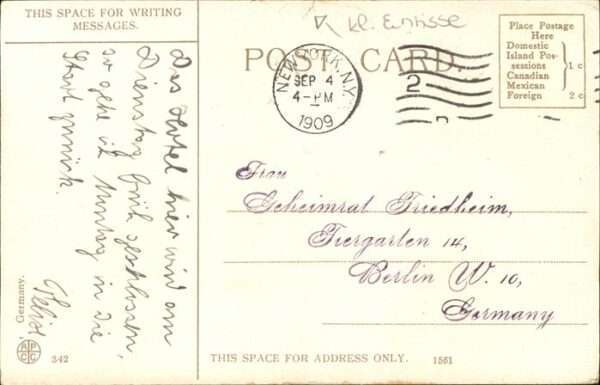 THIS SPACE FOR WRITING
MESSAGES.
POST CARD.
NEW YORK, N.Y.
SEP 4
4-PM
1909
2
Place Postage
Here
Domestic
Island Pos-
sessions
Canadian
Mexican
1 c
Foreign 2 c
Das Hotel hier wird am
Dienstag früh geschlossen,
so gehe ich Montag in die
Stadt zurück.
Frau
Geheimrat Friedheim,
Tiergarten 14,
Berlin W. 10,
Germany
Germany.
342
THIS SPACE FOR ADDRESS ONLY.
1561